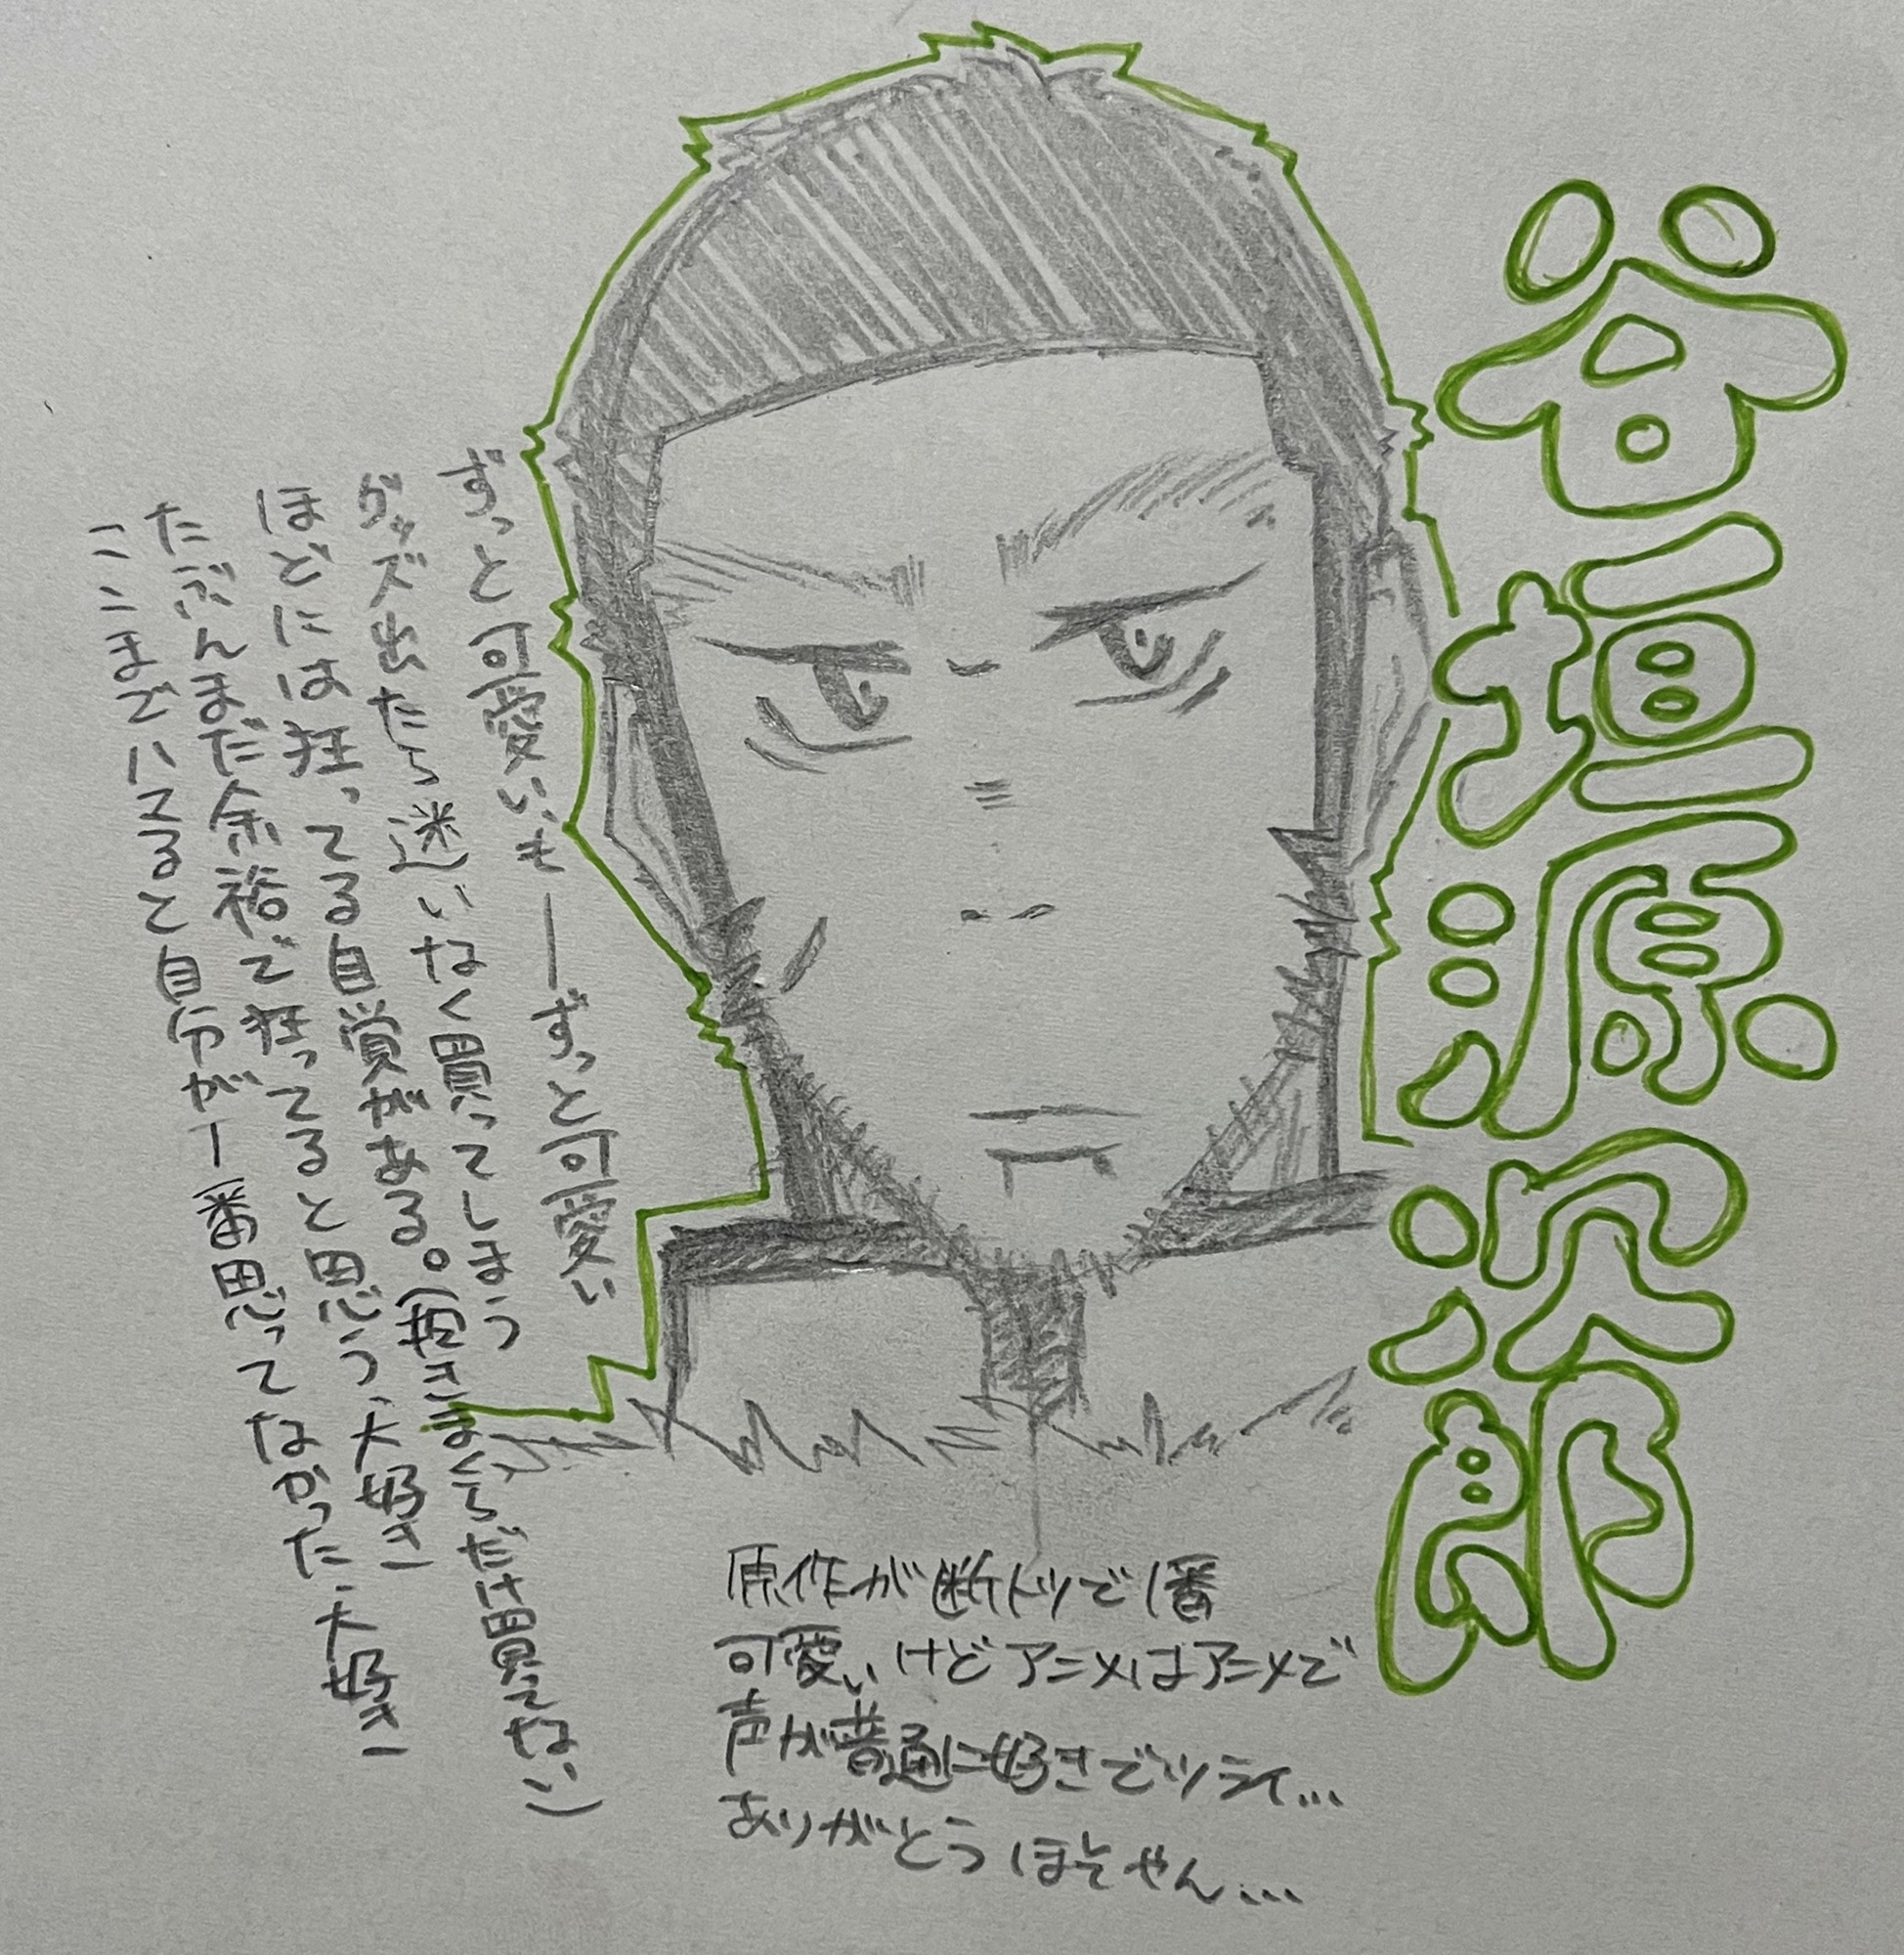 谷垣源次郎
ずっと可愛いもーーずっと可愛い
グッズ出たら迷いなく買ってしまう
ほどには狂ってる自覚がある。(抱きまくらだけ買えてない)
たぶんまだ余裕で狂ってると思う、大好きー
ここまでハマると自分が一番思ってなかった、大好きー
原作が断トツで1番
可愛いけどアニメはアニメで
声が普通に好きでツライ...
ありがとうほそやん...